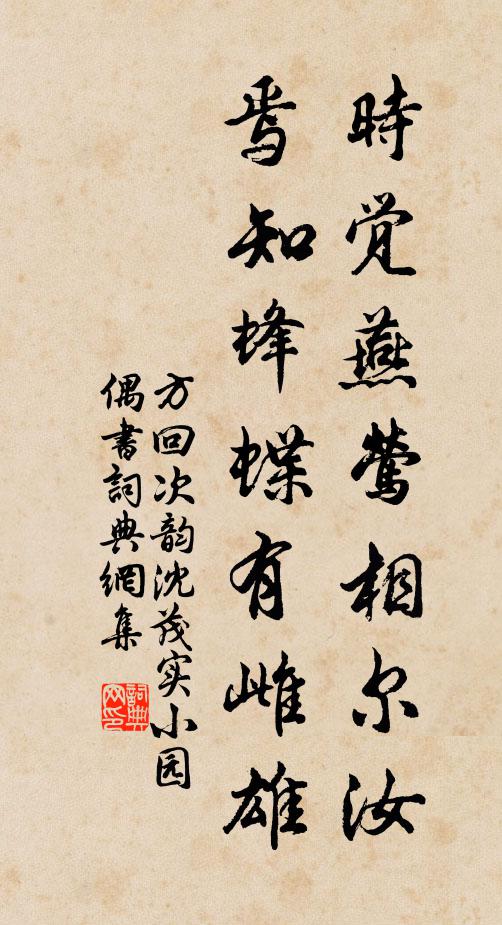 時觉燕莺相尔汝
焉知蜂蝶有雌雄
方回次韵沈茂实小园
偶書詞典網集
詞典
网印